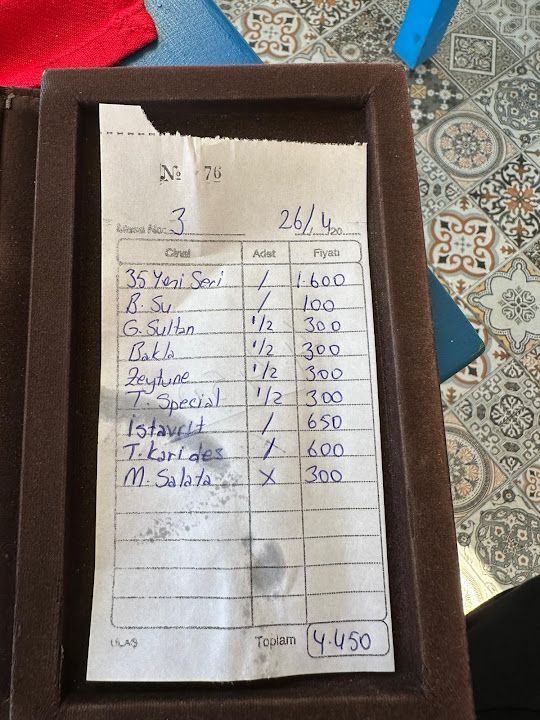 № 76
Masa No: 3 26/4/20
Cinsi Adet Fiyatı
35 Yeni Seri / 1.600
B. Su / 100
G. Sultan 1/2 300
Bakla 1/2 300
Zeytune 1/2 300
T. Special 1/2 300
istavrit / 650
T. Karides / 600
M. Salata X 300
Toplam 4.450